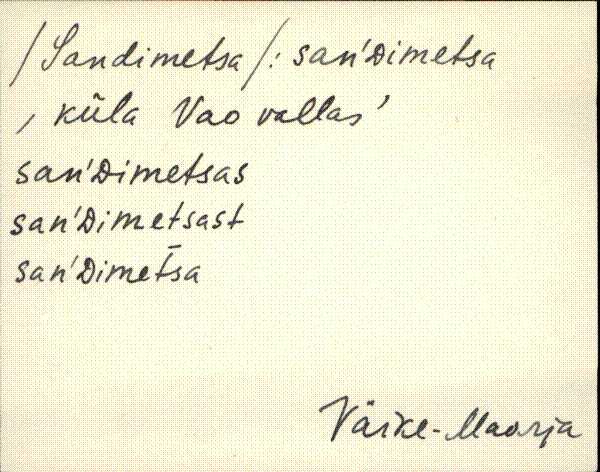 /Sandimetsa/: san'Dimetsa
, küla Vao vallas'
san'Dimetsas
san'Dimetsast
san'Dimet̄sa
Väike-Maarja